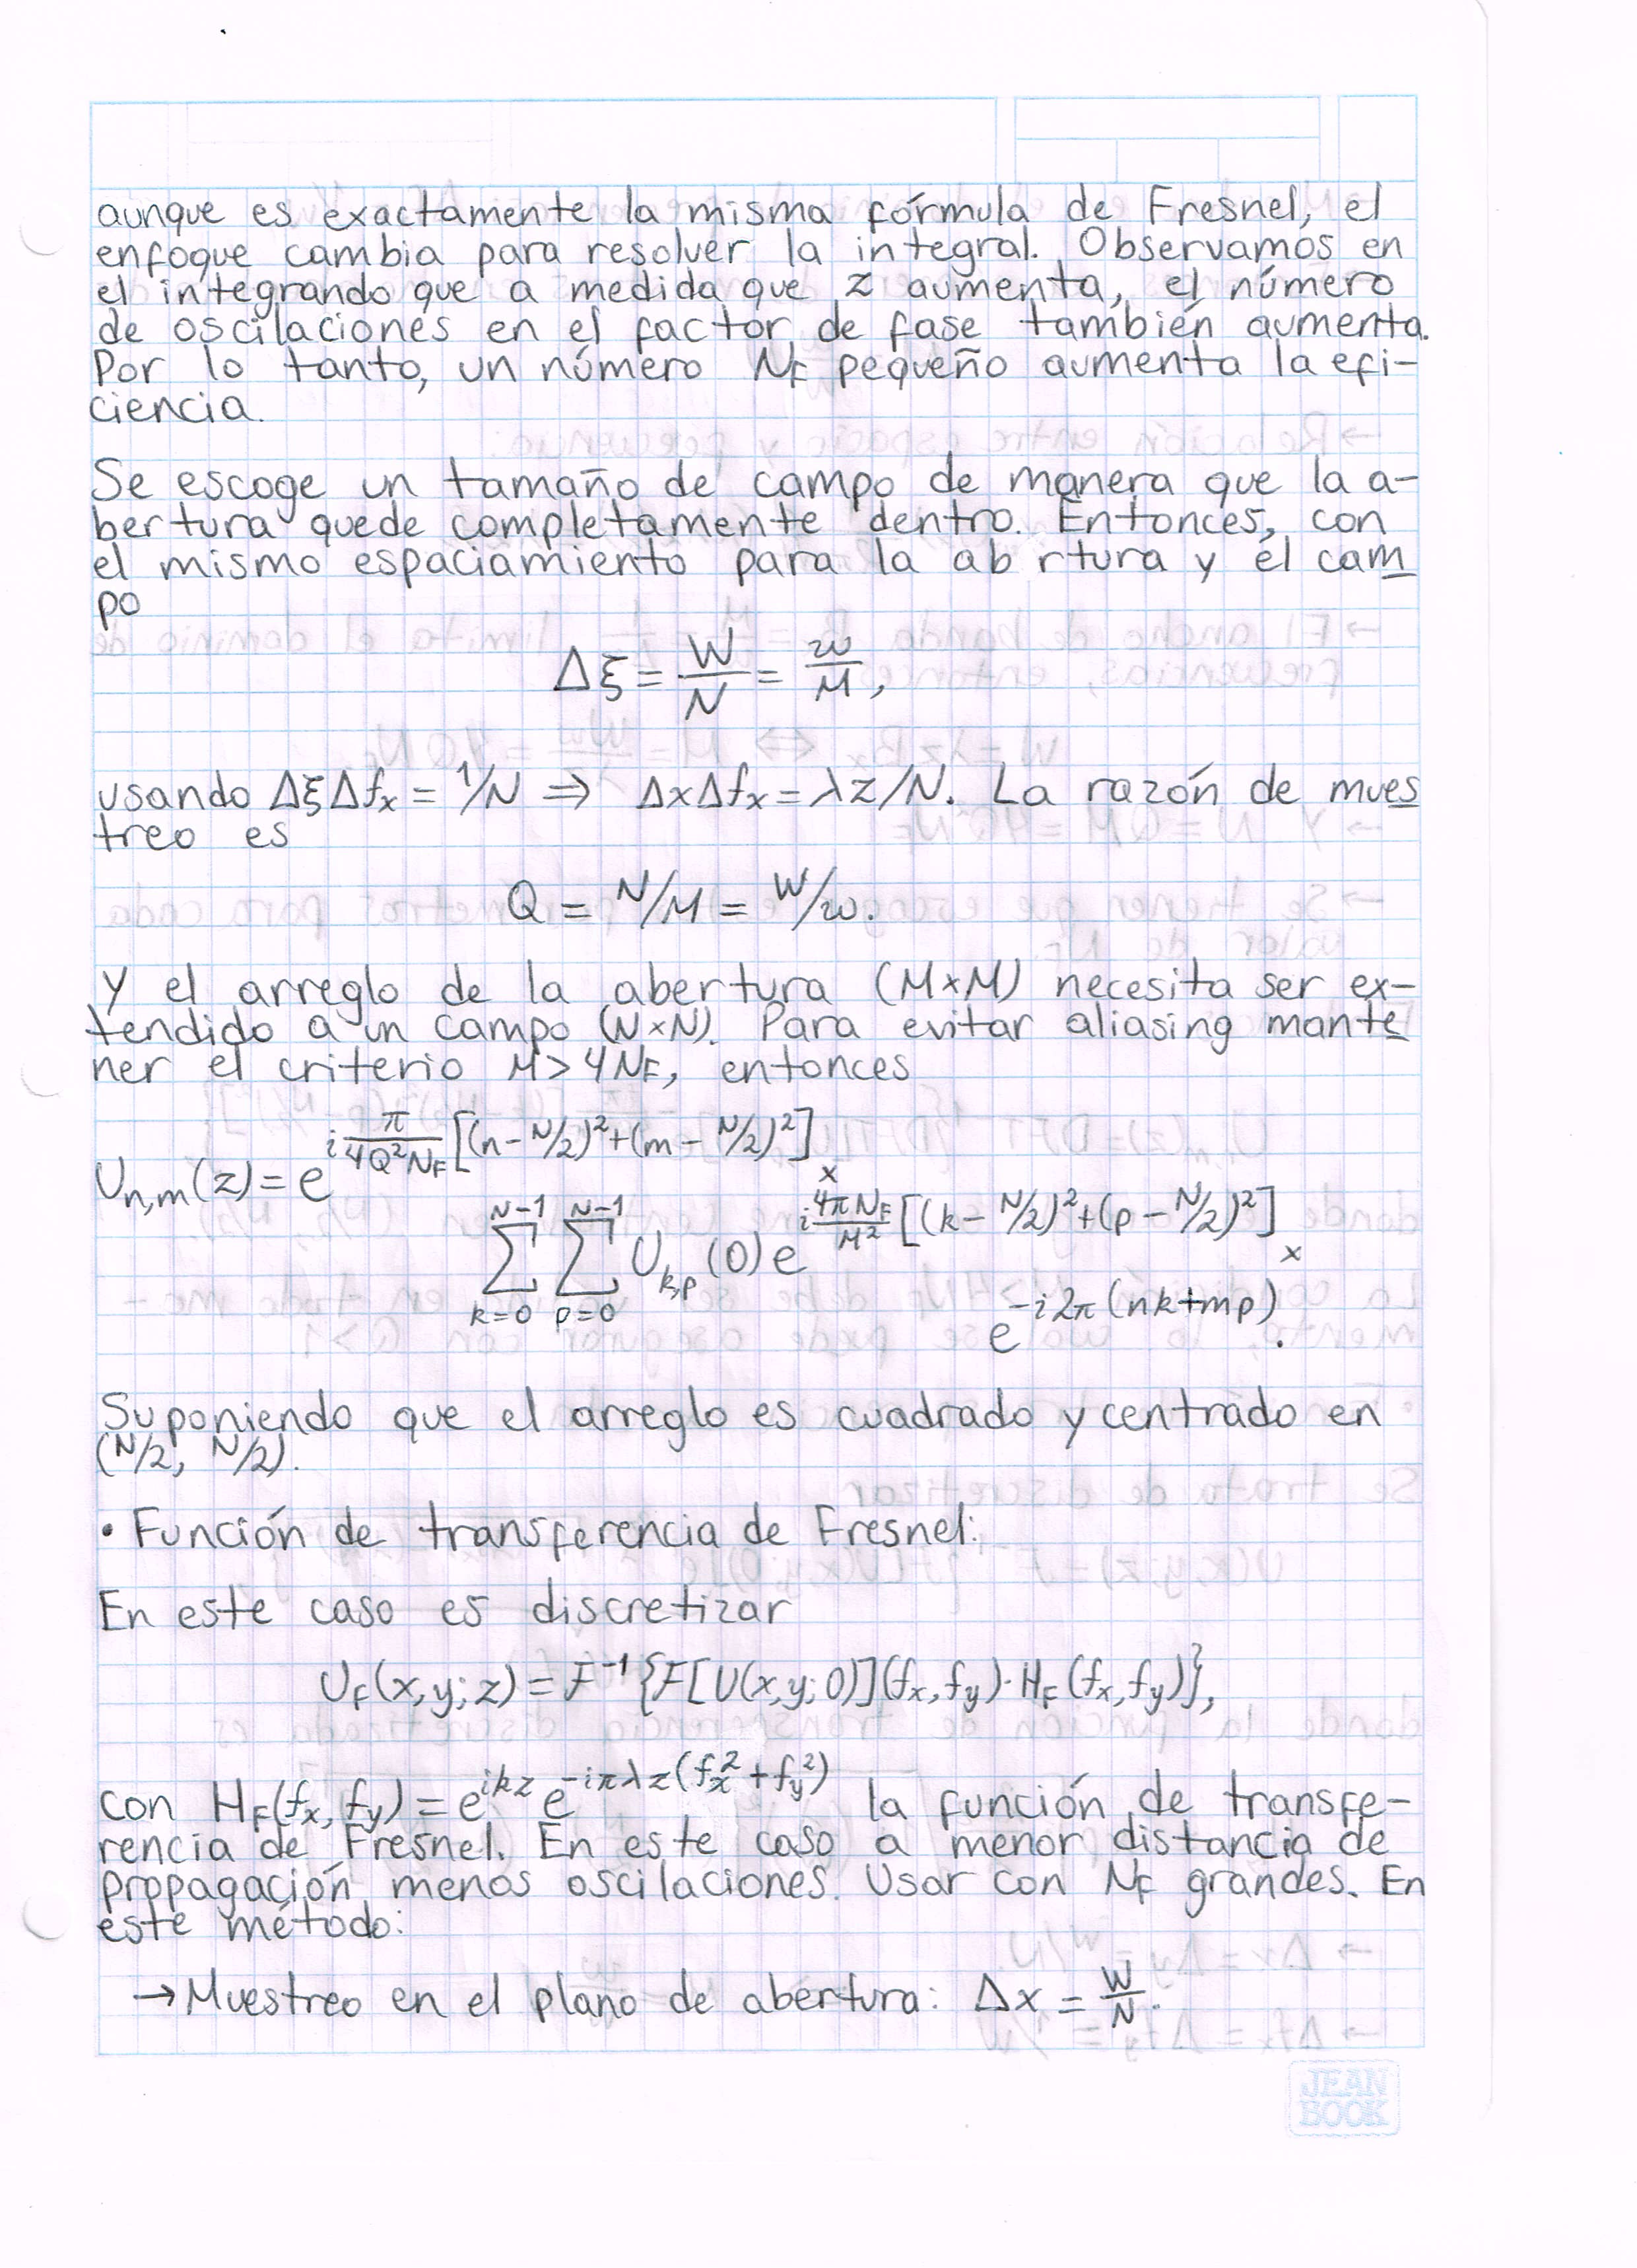 aunque es exactamente la misma fórmula de Fresnel, el
enfoque cambia para resolver la integral. Observamos en
el integrando que a medida que z aumenta, el número
de oscilaciones en el factor de fase también aumenta.
Por lo tanto, un número N_F pequeño aumenta la efi-
ciencia.
Se escoge un tamaño de campo de manera que la a-
bertura quede completamente dentro. Entonces, con
el mismo espaciamiento para la ab rtura y el cam
po
Δξ = W/N = w/M,
usando ΔξΔf_x = 1/N ⇒ ΔxΔf_x = λz/N. La razón de mues
treo es
Q = N/M = W/w.
Y el arreglo de la abertura (M×M) necesita ser ex-
tendido a un campo (N×N). Para evitar aliasing mante
ner el criterio M > 4N_F, entonces
U_{n,m}(z) = e^{i π/(4Q²N_F) [(n - N/2)² + (m - N/2)²]} ×
∑_{k=0}^{N-1} ∑_{p=0}^{N-1} U_{k,p}(0) e^{i 4πN_F/M² [(k - N/2)² + (p - N/2)²]} ×
e^{-i2π(nk+mp)}.
Suponiendo que el arreglo es cuadrado y centrado en
(N/2, N/2).
• Función de transferencia de Fresnel:
En este caso es discretizar
U_F(x,y;z) = F⁻¹{F[U(x,y;0)](f_x,f_y)·H_F(f_x,f_y)},
con H_F(f_x,f_y) = e^{ikz} e^{-iπλz(f_x²+f_y²)} la función de transfe-
rencia de Fresnel. En este caso a menor distancia de
propagación menos oscilaciones. Usar con N_F grandes. En
este método:
→ Muestreo en el plano de abertura: Δx = W/N.
JEAN
BOOK